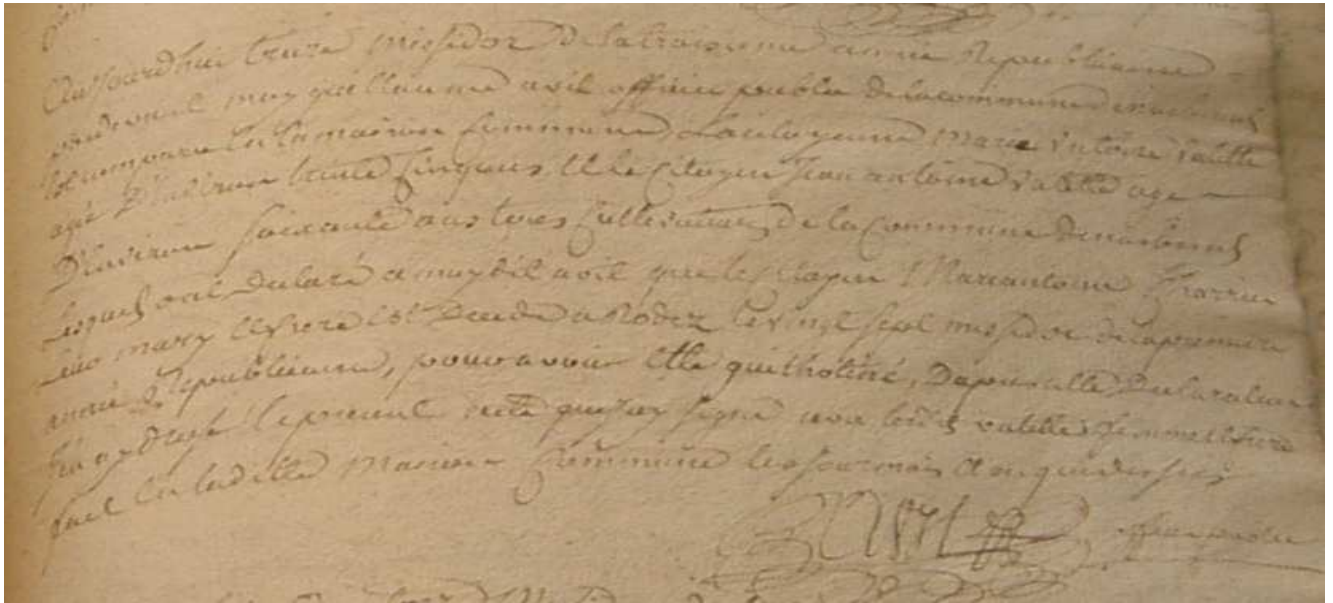 aujourdhui treize messidor de la troisieme année Republicaine
pardevant moy guillaume avil officier publiq de la commune
est comparu en la maison commune, La citoyenne Marie victoire valette
agée D'environ trente cinq ans, et le Citoyen Jean antoine valette age
D'environ soixante ans tous cultivateurs de la Commune
Lesquels ont declaré a moy dit avil que le citoyen Marcantoine
mary et frere est decedé a Rodez le vingt sept messidor de la premiere
année Republicaine, pour avoir etté guilhotiné, Dapres cette declaration
jai dressé le present acte que jay signé non lesdits valette femme et frere
fait en laditte Maison Commune les jour mois et an que dessus
avil officier publiq